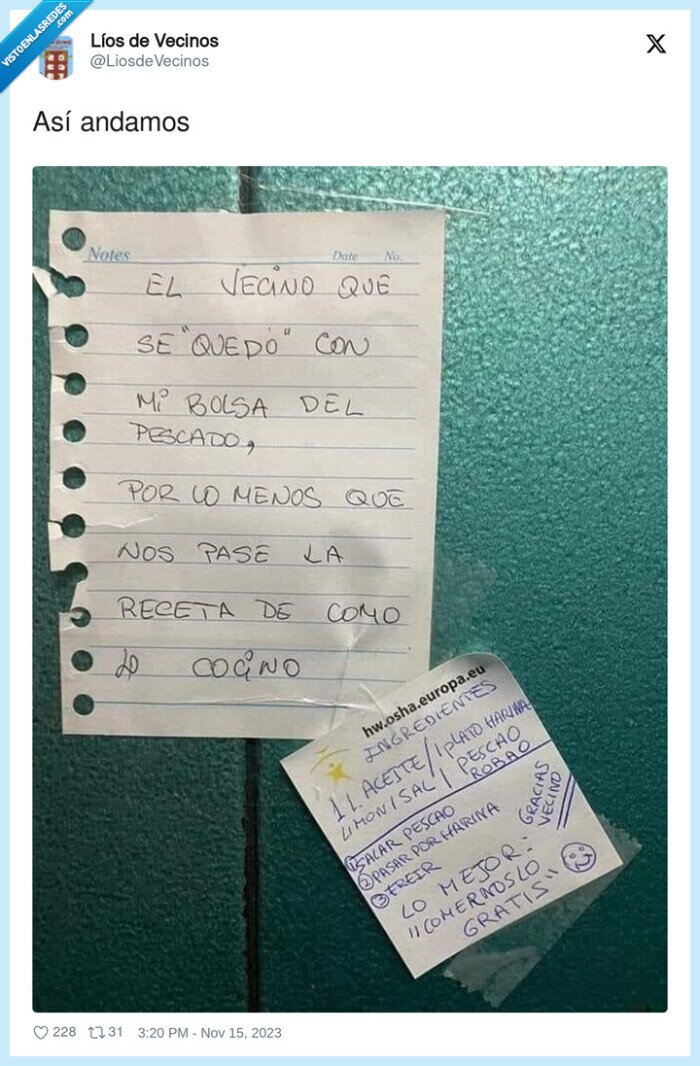 VISTOENLASREDES
.com
Líos de Vecinos
@LiosdeVecinos
X
Así andamos
Notes Date No.
EL VECINO QUE
SE "QUEDÓ" CON
Mi BOLSA DEL
PESCADO,
POR LO MENOS QUE
NOS PASE LA
RECETA DE COMO
LO COCINO
hw.osha.europa.eu
INGREDIENTES
1 L. ACEITE/1 PLATO HARINA
LIMON/SAL/PESCAO
ROBAO
①SALAR PESCAO
②PASAR POR HARINA
③FREIR
GRACIAS
VECINO
LO MEJOR:
"COMERNOSLO
GRATIS"
228 31 3:20 PM - Nov 15, 2023